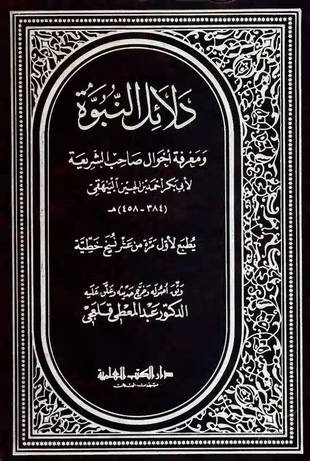 دلائل النبوة
ومعرفة أحوال صاحب الشريعة
لأبي بكر أحمد بن الحسين البيهقي
(٣٨٤ - ٤٥٨) هـ
يطبع لأول مرة من عشر نسخ خطية
وثق أصوله وخرج حديثه وعلق عليه
الدكتور عبد المعطي قلعجي
دار الكتب العلمية